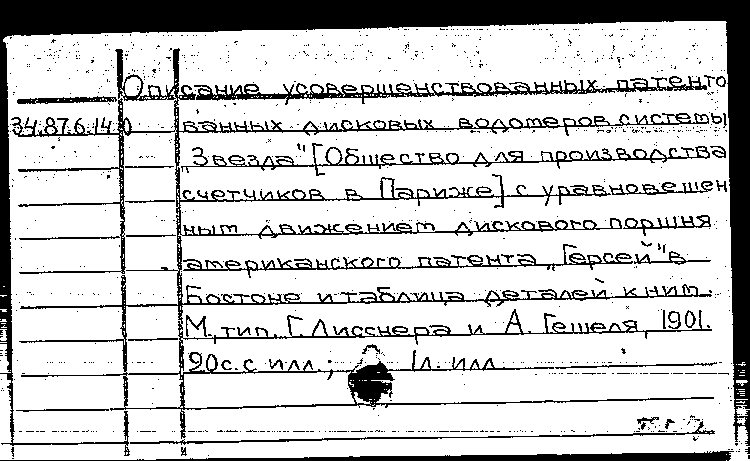 Описание усовершенствованных патенто
34.87.6.140 ванных дисковых водомеров системы
„Звезда" [Общество для производства
счетчиков в Париже] с уравновешен
ным движением дискового поршня
американского патента „Герсей" в
Бостоне и таблица деталей к ним.
М, тип. Г. Лисснера и А. Гешеля, 1901.
90с. с илл.; 1л. илл.